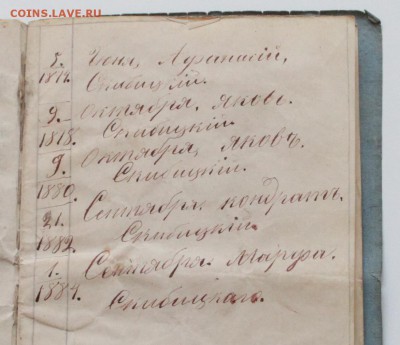 COINS.LAVE.RU
5. Июля, Афанасій,
Скибицкій.
9. Октября, Яковъ.
1878. Скибицкій.
9. Октября, Яковъ.
1880. Скибицкій.
21. Сентября Кондратъ.
1882. Скибицкій.
1. Сентября. Марфа.
1884. Скибицкаго.